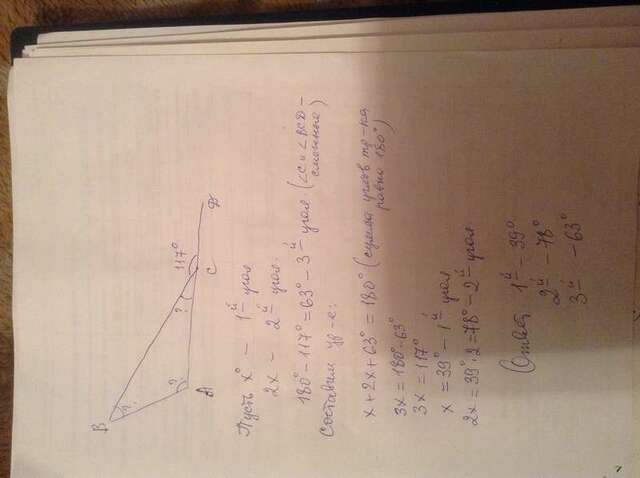 B
?
?
?
117°
A
C
D
Пусть x° – 1й угол
2x – 2й угол.
180° – 117° = 63° – 3й угол (∠C и ∠BCD – смежные)
Составим ур-е:
x + 2x + 63° = 180° (сумма углов тр-ка
равна 180°)
3x = 180° – 63°
3x = 117°
x = 39° – 1й угол
2x = 39° · 2 = 78° – 2й угол.
Ответ 1й – 39°
2й – 78°
3й – 63°